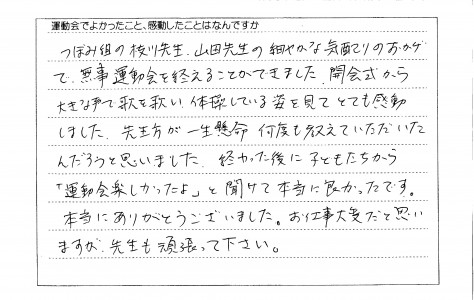 運動会でよかったこと、感動したことはなんですか
つぼみ組の枝川先生、山田先生の細やかな気配りのおかげ
で、無事運動会を終えることができました。開会式から
大きな声で歌を歌い、体操している姿を見てとても感動
しました。先生方が一生懸命 何度も教えていただいた
んだろうと思いました。終わった後に子どもたちから
「運動会楽しかったよ」と聞けて本当に良かったです。
本当にありがとうございました。お仕事大変だと思い
ますが、先生も頑張って下さい。